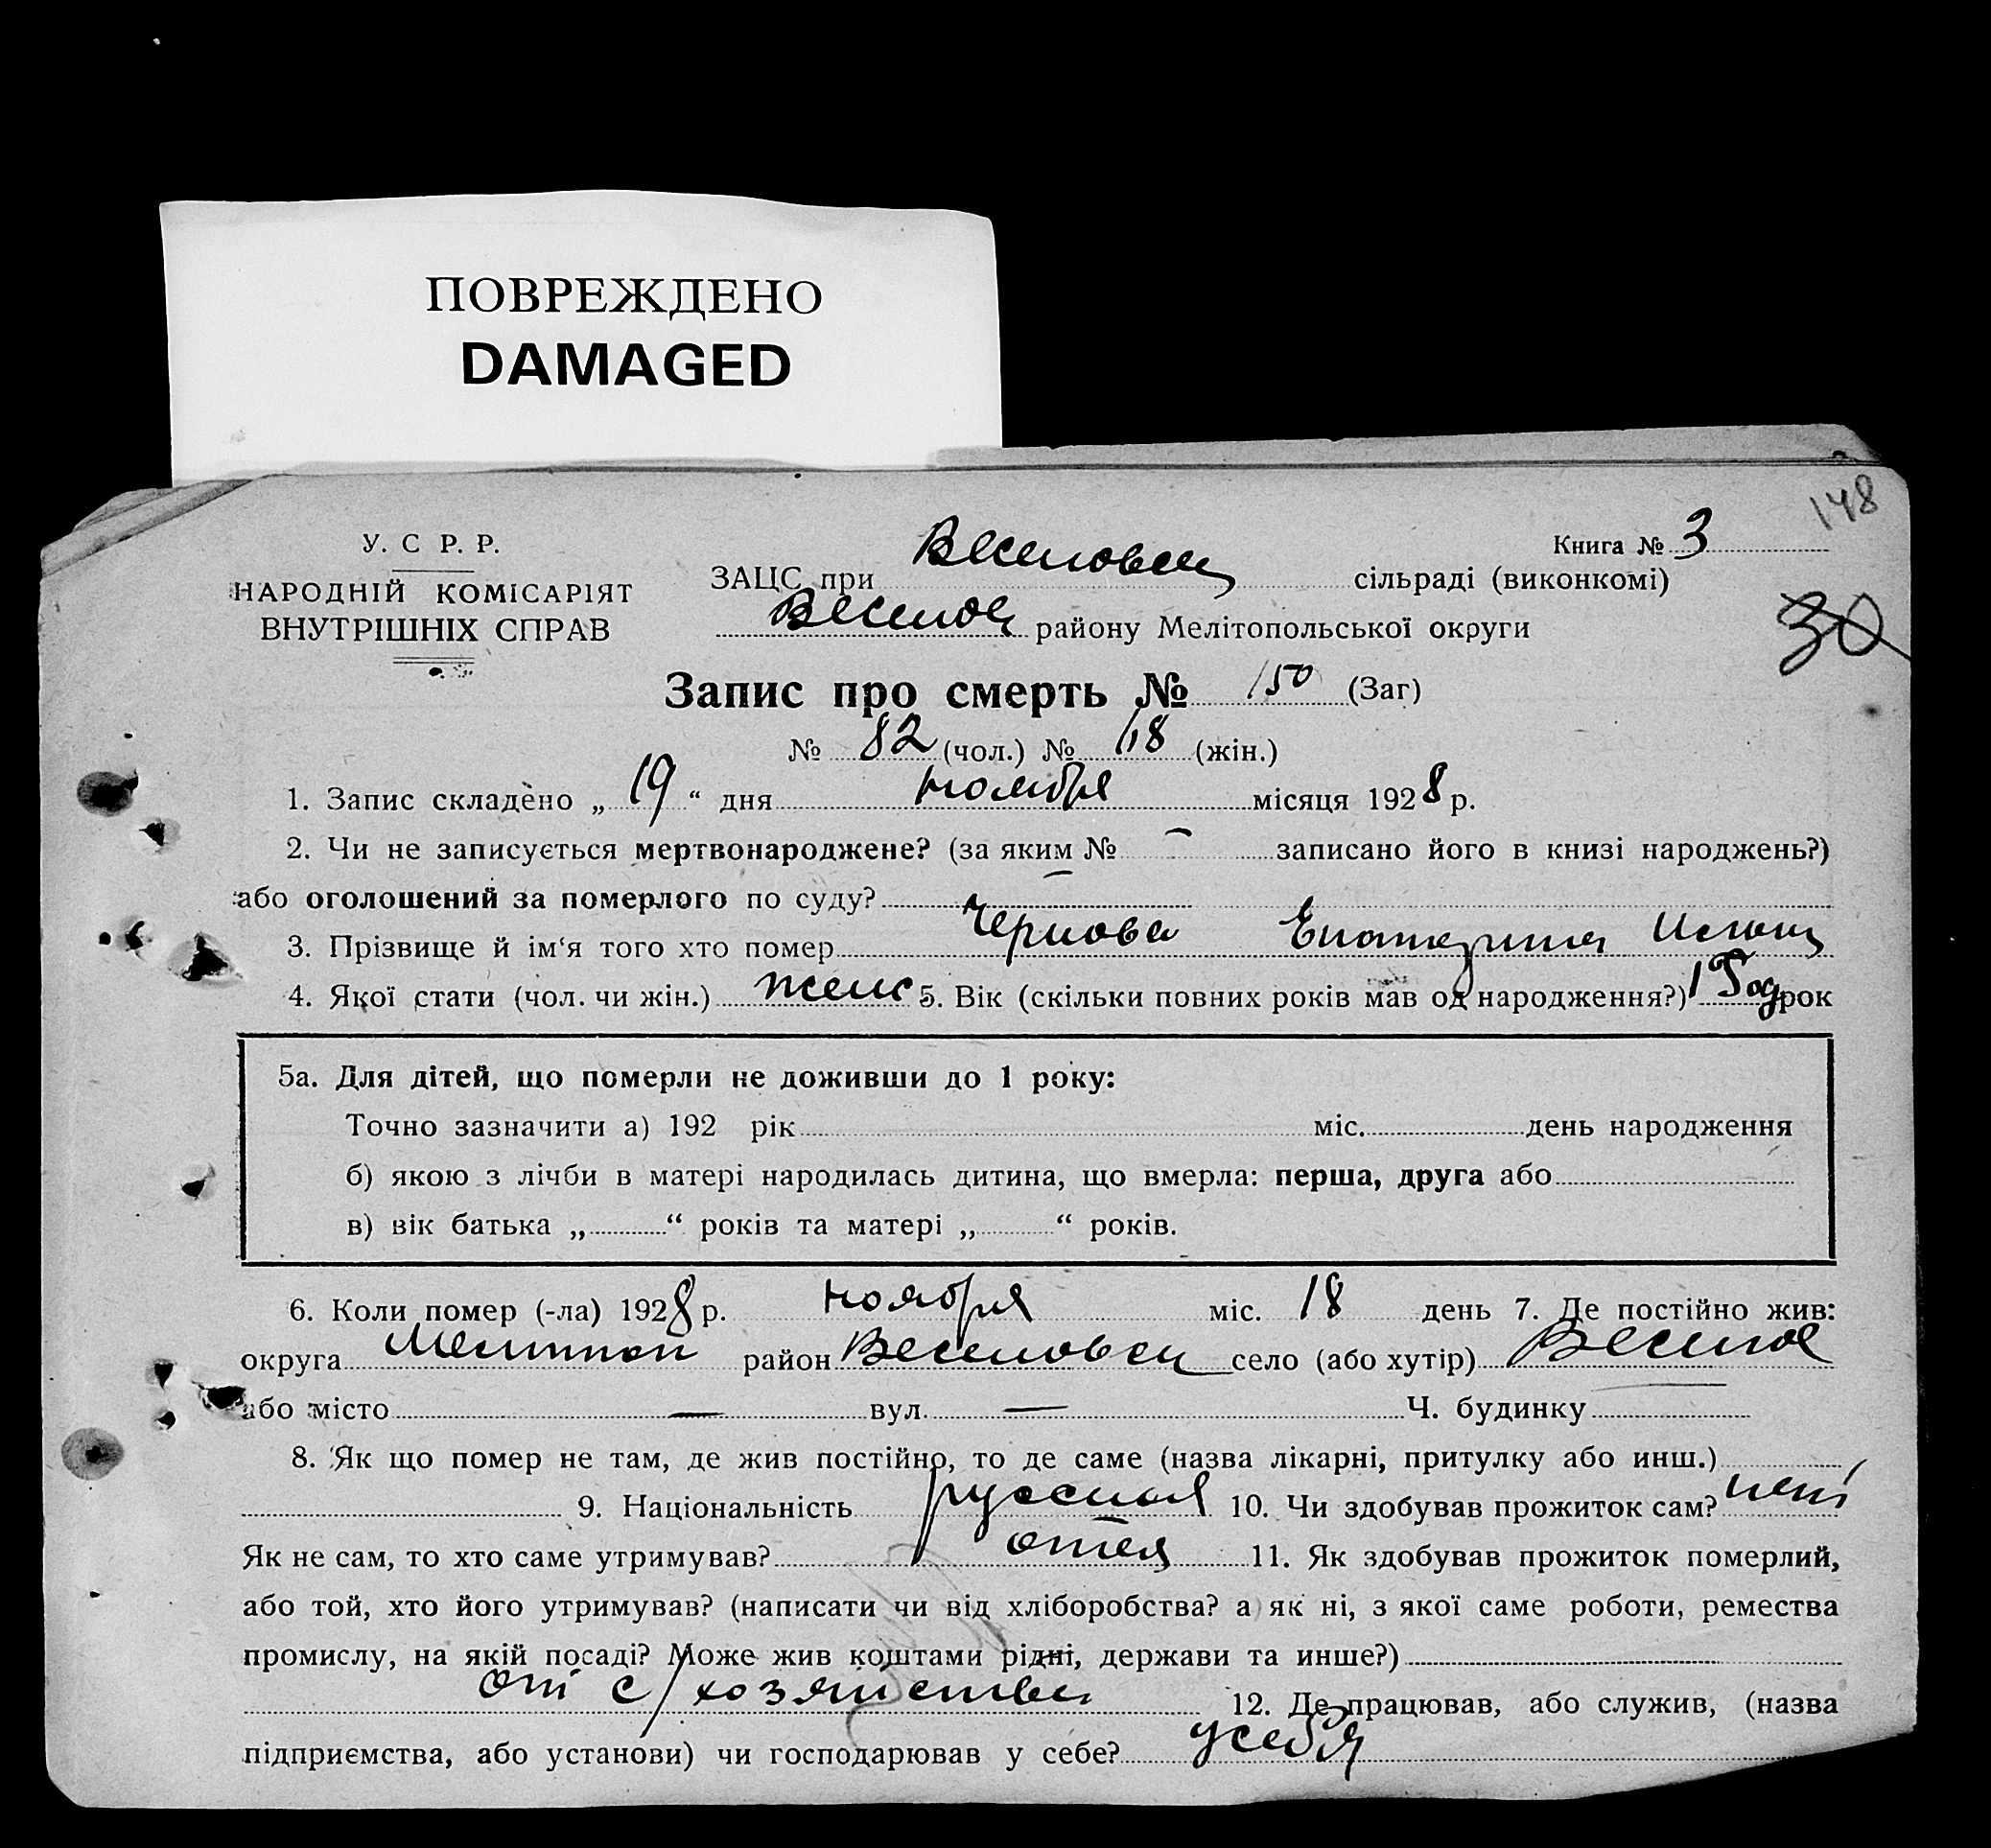 ПОВРЕЖДЕНО
DAMAGED
148
У. С Р. Р.
НАРОДНІЙ КОМІСАРІЯТ
ВНУТРІШНІХ СПРАВ
Книга № 3
ЗАЦС при Веселовск сільраді (виконкомі)
Веселов району Мелітопольської округи
30
Запис про смерть № 150 (Заг)
№ 82 (чол.) № 68 (жін.)
1. Запис складено „ 19 “ дня ноября місяця 1928 р.
2. Чи не записується мертвонароджене? (за яким № – записано його в книзі народжень?)
або оголошений за померлого по суду? –
3. Прізвище й ім‘я того хто помер Чернова Екатерина
4. Якої стати (чол. чи жін.) женс 5. Вік (скільки повних років мав од народження?) 1 год рок
5а. Для дітей, що померли не доживши до 1 року:
Точно зазначити а) 192 рік міс. день народження
б) якою з лічби в матері народилась дитина, що вмерла: перша, друга або
в) вік батька „ “ років та матері „ “ років.
6. Коли помер (-ла) 1928 р. ноября міс. 18 день 7. Де постійно жив:
округа Мелитоп район Веселовск село (або хутір) Веселое
або місто — вул. — Ч. будинку
8. Як що помер не там, де жив постійно, то де саме (назва лікарні, притулку або инш.)
9. Національність русская 10. Чи здобував прожиток сам? нет
Як не сам, то хто саме утримував? отец 11. Як здобував прожиток померлий,
або той, хто його утримував? (написати чи від хліборобства? а як ні, з якої саме роботи, ремества
промислу, на якій посаді? Може жив коштами рідні, держави та инше?)
от с/хозяйства 12. Де працював, або служив, (назва
підприємства, або установи) чи господарював у себе? у себя